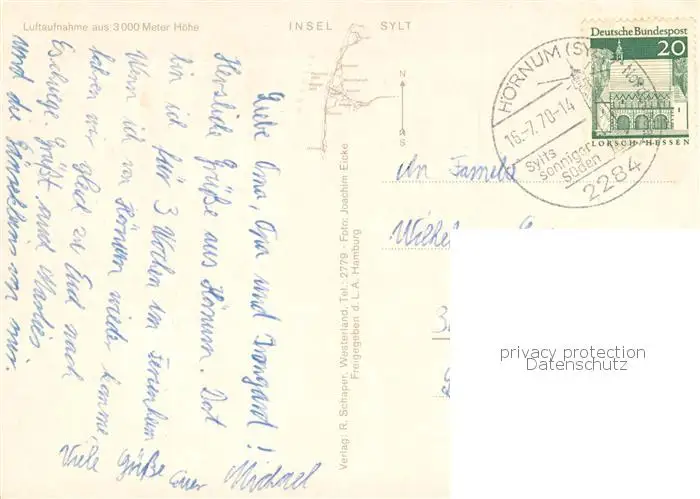 Luftaufnahme aus 3000 Meter Höhe
INSEL SYLT
N
S
Liebe Oma, Opa und Irmgard!
Herzliche Grüße aus Hörnum. Dort
bin ich für 3 Wochen im Ferienheim
Wenn ich von Hörnum wieder komme,
fahren wir gleich zu Euch nach
Eschwege. Grüßt und Marlies
und die von mir.
Viele Grüße Euer Michael
Verlag: R. Schaper, Westerland, Tel.: 2779 - Foto: Joachim Eicke
Freigegeben d. L.A. Hamburg
HÖRNUM (SYLT)
16.-7.70-14
Sylt's
sonniger
Süden
2284
Deutsche Bundespost
20
LORSCH/HESSEN
An Familie
privacy protection
Datenschutz